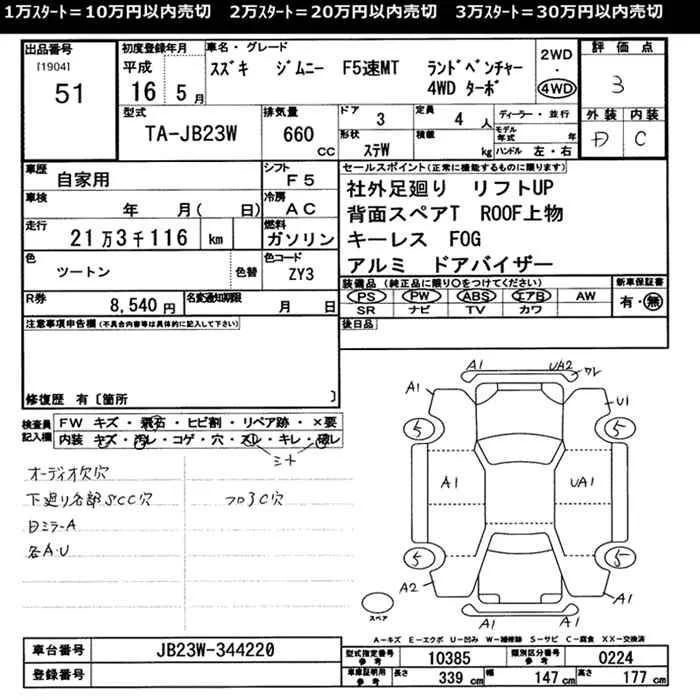 1万スタート＝10万円以内売切　2万スタート＝20万円以内売切　3万スタート＝30万円以内売切
出品番号
[1904]
51
初度登録年月
平成
16 5月
車名・グレード
スズキ　ジムニー　F5速MT　ランドベンチャー
4WD ターボ
2WD
・
4WD
評価点
3
外装 内装
D C
型式
TA-JB23W
排気量
660
CC
ドア
3
定員
4 人
形状
ステW
積載
kg
ディーラー・並行
モデル年式 年
ハンドル 左・右
車歴
自家用
シフト
F5
車検
年　月(　日)
冷房
AC
走行
21万3千116 km
燃料
ガソリン
色
ツートン
色替
色コード
ZY3
R券
8,540 円
名変通知期限
月　日
セールスポイント(正常に機能するものに限ります)
社外足廻り　リフトUP
背面スペアT　ROOF上物
キーレス　FOG
アルミ　ドアバイザー
装備品 (純正品に限り○をつけてください)
PS PW ABS エアB AW
SR ナビ TV カワ
新車保証書
有・無
後日品
注意事項申告欄(不具合内容等は具体的に記入して下さい)
修復歴 有〔箇所　〕
検査員
記入欄
FW キズ・飛石・ヒビ割・リペア跡・×要
内装 キズ・汚レ・コゲ・穴・スレ・キレ・破レ
シート
オーディオ欠穴
下廻り各部SCC穴
フロアC穴
日ミラーA
各A・U
A1 UA2 ワレ
A1 U1
5 5
A1 UA1
5 5
A2 A1
A1 A1
スペア
A－キズ E－エクボ U－凹み W－補修跡 S－サビ C－腐食 XX－交換済
車台番号
JB23W-344220
登録番号
型式指定番号
参考
10385
類別区分番号
参考
0224
車庫証明用
参考
長さ
339 cm
幅
147 cm
高さ
177 cm